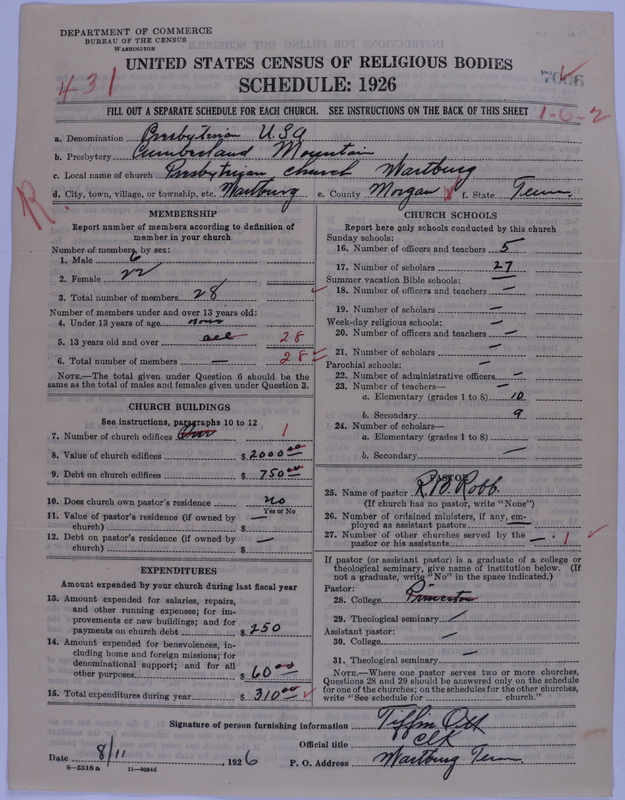 DEPARTMENT OF COMMERCE
BUREAU OF THE CENSUS
WASHINGTON
UNITED STATES CENSUS OF RELIGIOUS BODIES
SCHEDULE: 1926
431
FILL OUT A SEPARATE SCHEDULE FOR EACH CHURCH. SEE INSTRUCTIONS ON THE BACK OF THIS SHEET
1-6-2
a. Denomination Presbyterian U.S.A
b. Presbytery Cumberland Mountain
c. Local name of church Presbyterian church Wartburg
d. City, town, village, or township, etc. Wartburg e. County Morgan f. State Tenn.
R.
MEMBERSHIP
Report number of members according to definition of
member in your church
Number of members, by sex:
1. Male 6
2. Female 22
3. Total number of members 28
Number of members under and over 13 years old:
4. Under 13 years of age none
5. 13 years old and over all 28
6. Total number of members — 28
NOTE.—The total given under Question 6 should be the
same as the total of males and females given under Question 3.
CHURCH BUILDINGS
See instructions, paragraphs 10 to 12
7. Number of church edifices One 1
8. Value of church edifices $2000.00
9. Debt on church edifices $750.00
10. Does church own pastor's residence no
Yes or No
11. Value of pastor's residence (if owned by
church) $ —
12. Debt on pastor's residence (if owned by
church) $ —
EXPENDITURES
Amount expended by your church during last fiscal year
13. Amount expended for salaries, repairs,
and other running expenses; for im-
provements or new buildings; and for
payments on church debt $250
14. Amount expended for benevolences, in-
cluding home and foreign missions; for
denominational support; and for all
other purposes $60.00
15. Total expenditures during year $310.00
CHURCH SCHOOLS
Report here only schools conducted by this church
Sunday schools:
16. Number of officers and teachers 5
17. Number of scholars 27
Summer vacation Bible schools: —
18. Number of officers and teachers —
19. Number of scholars —
Week-day religious schools: —
20. Number of officers and teachers —
21. Number of scholars —
Parochial schools: —
22. Number of administrative officers —
23. Number of teachers— —
a. Elementary (grades 1 to 8) 10
b. Secondary 9
24. Number of scholars—
a. Elementary (grades 1 to 8) —
b. Secondary —
PASTOR
25. Name of pastor Robb
(If church has no pastor, write "None")
26. Number of ordained ministers, if any, em-
ployed as assistant pastors —
27. Number of other churches served by the
pastor or his assistants — 1
If pastor (or assistant pastor) is a graduate of a college or
theological seminary, give name of institution below. (If
not a graduate, write "No" in the space indicated.)
Pastor:
28. College Princeton
29. Theological seminary —
Assistant pastor:
30. College —
31. Theological seminary —
NOTE.—Where one pastor serves two or more churches,
Questions 28 and 29 should be answered only on the schedule
for one of the churches; on the schedules for the other churches,
write "See schedule for ______ church."
Signature of person furnishing information Tiffin Ott
Official title Clk
Date 8/11, 1926 P. O. Address Wartburg Tenn.
8-5518a 11-9054d